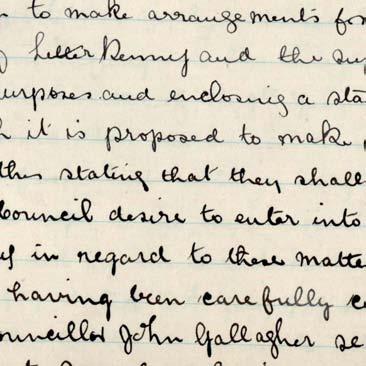 to make arrangements for
LetterKenny and the sup
urposes and enclosing a sta
h it is proposed to make
ther stating that they shall
Council desire to enter into
y in regard to these matte
having been carefully c
ouncillor John Gallagher se